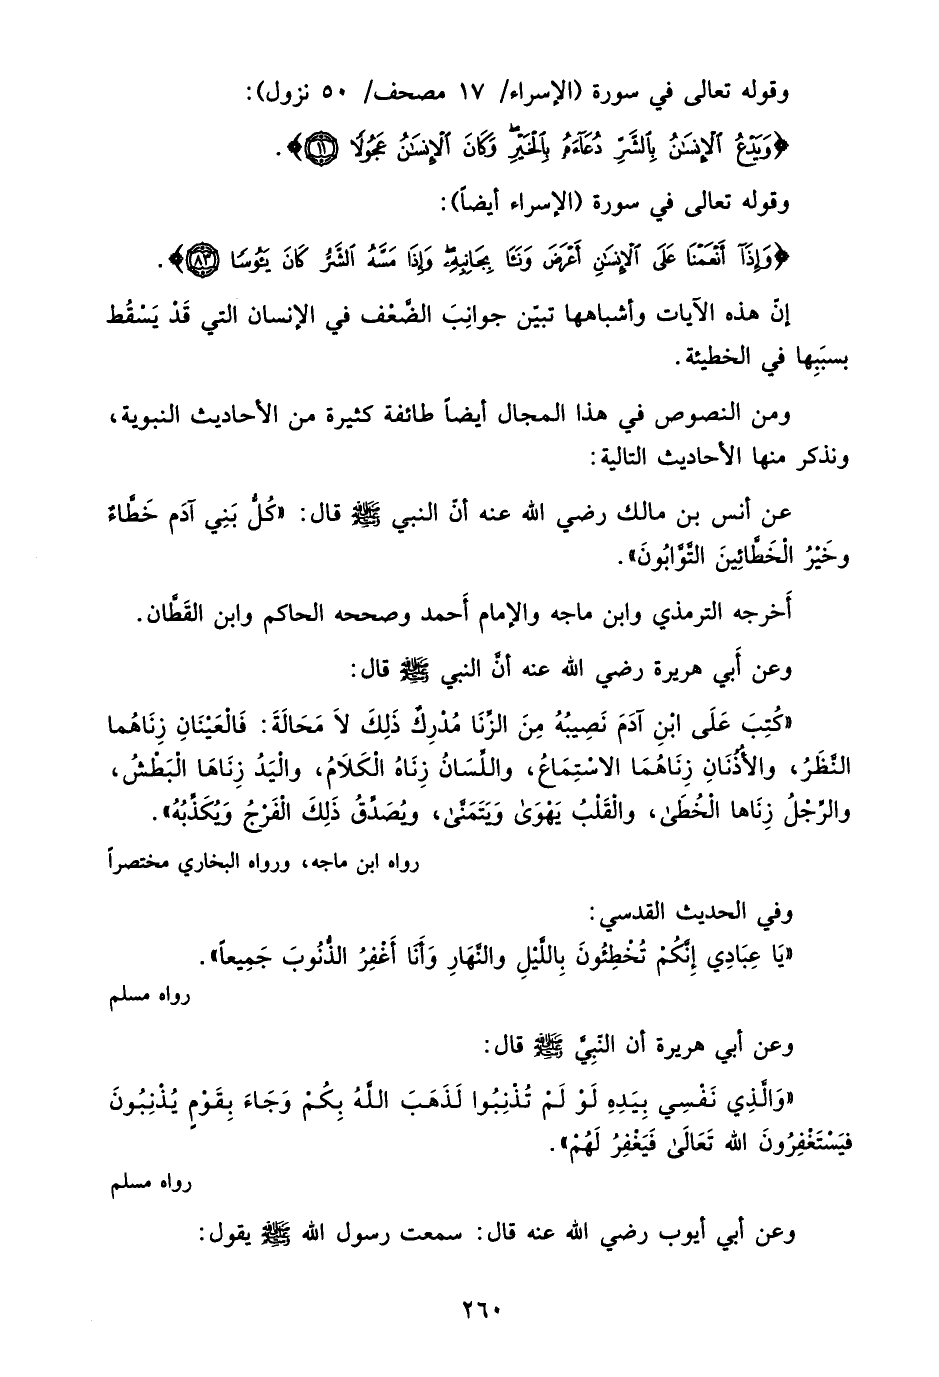 وقوله تعالى في سورة (الإسراء/ ١٧ مصحف/ ٥٠ نزول):
﴿وَيَدْعُ ٱلْإِنسَٰنُ بِٱلشَّرِّ دُعَآءَهُۥ بِٱلْخَيْرِ ۖ وَكَانَ ٱلْإِنسَٰنُ عَجُولًا ۝١١﴾.
وقوله تعالى في سورة (الإسراء أيضاً):
﴿وَإِذَآ أَنْعَمْنَا عَلَى ٱلْإِنسَٰنِ أَعْرَضَ وَنَـَٔا بِجَانِبِهِۦ ۖ وَإِذَا مَسَّهُ ٱلشَّرُّ كَانَ يَـُٔوسًا ۝٨٣﴾.
إنّ هذه الآيات وأشباهها تبيّن جوانِبَ الضَّعْف في الإنسان التي قَدْ يَسْقُط
بسبَبِها في الخطيئة.
ومن النصوص في هذا المجال أيضاً طائفة كثيرة من الأحاديث النبوية،
ونذكر منها الأحاديث التالية:
عن أنس بن مالك رضي الله عنه أنّ النبي ﷺ قال: «كُلُّ بَنِي آدَم خَطَّاءٌ
وخَيْرُ الْخَطَّائِينَ التَّوَّابُونَ».
أَخرجه الترمذي وابن ماجه والإمام أَحمد وصححه الحاكم وابن القَطَّان.
وعن أَبي هريرة رضي الله عنه أنَّ النبي ﷺ قال:
«كُتِبَ عَلَى ابْنِ آدَمَ نَصِيبُهُ مِنَ الزِّنَا مُدْرِكٌ ذَلِكَ لاَ مَحَالَةَ: فَالْعَيْنَانِ زِنَاهُما
النَّظَرُ، والأُذُنَانِ زِنَاهُمَا الاسْتِمَاعُ، واللِّسَانُ زِنَاهُ الْكَلَامُ، والْيَدُ زِنَاهَا الْبَطْشُ،
والرِّجْلُ زِنَاها الْخُطَىٰ، والْقَلْبُ يَهْوَىٰ وَيَتَمَنَّىٰ، ويُصَدِّقُ ذَلِكَ الْفَرْجُ وَيُكَذِّبُهُ».
رواه ابن ماجه، ورواه البخاري مختصراً
وفي الحديث القدسي:
«يَا عِبَادِي إِنَّكُمْ تُخْطِئُونَ بِاللَّيْلِ والنَّهَارِ وَأَنَا أَغْفِرُ الذُّنُوبَ جَمِيعاً».
رواه مسلم
وعن أبي هريرة أن النّبِيَّ ﷺ قال:
«وَالَّذِي نَفْسِي بِيَدِهِ لَوْ لَمْ تُذْنِبُوا لَذَهَبَ اللَّهُ بِكُمْ وَجَاءَ بِقَوْمٍ يُذْنِبُونَ
فيَسْتَغْفِرُونَ الله تَعَالَىٰ فَيَغْفِرُ لَهُمْ».
رواه مسلم
وعن أبي أيوب رضي الله عنه قال: سمعت رسول الله ﷺ يقول:
٢٦٠